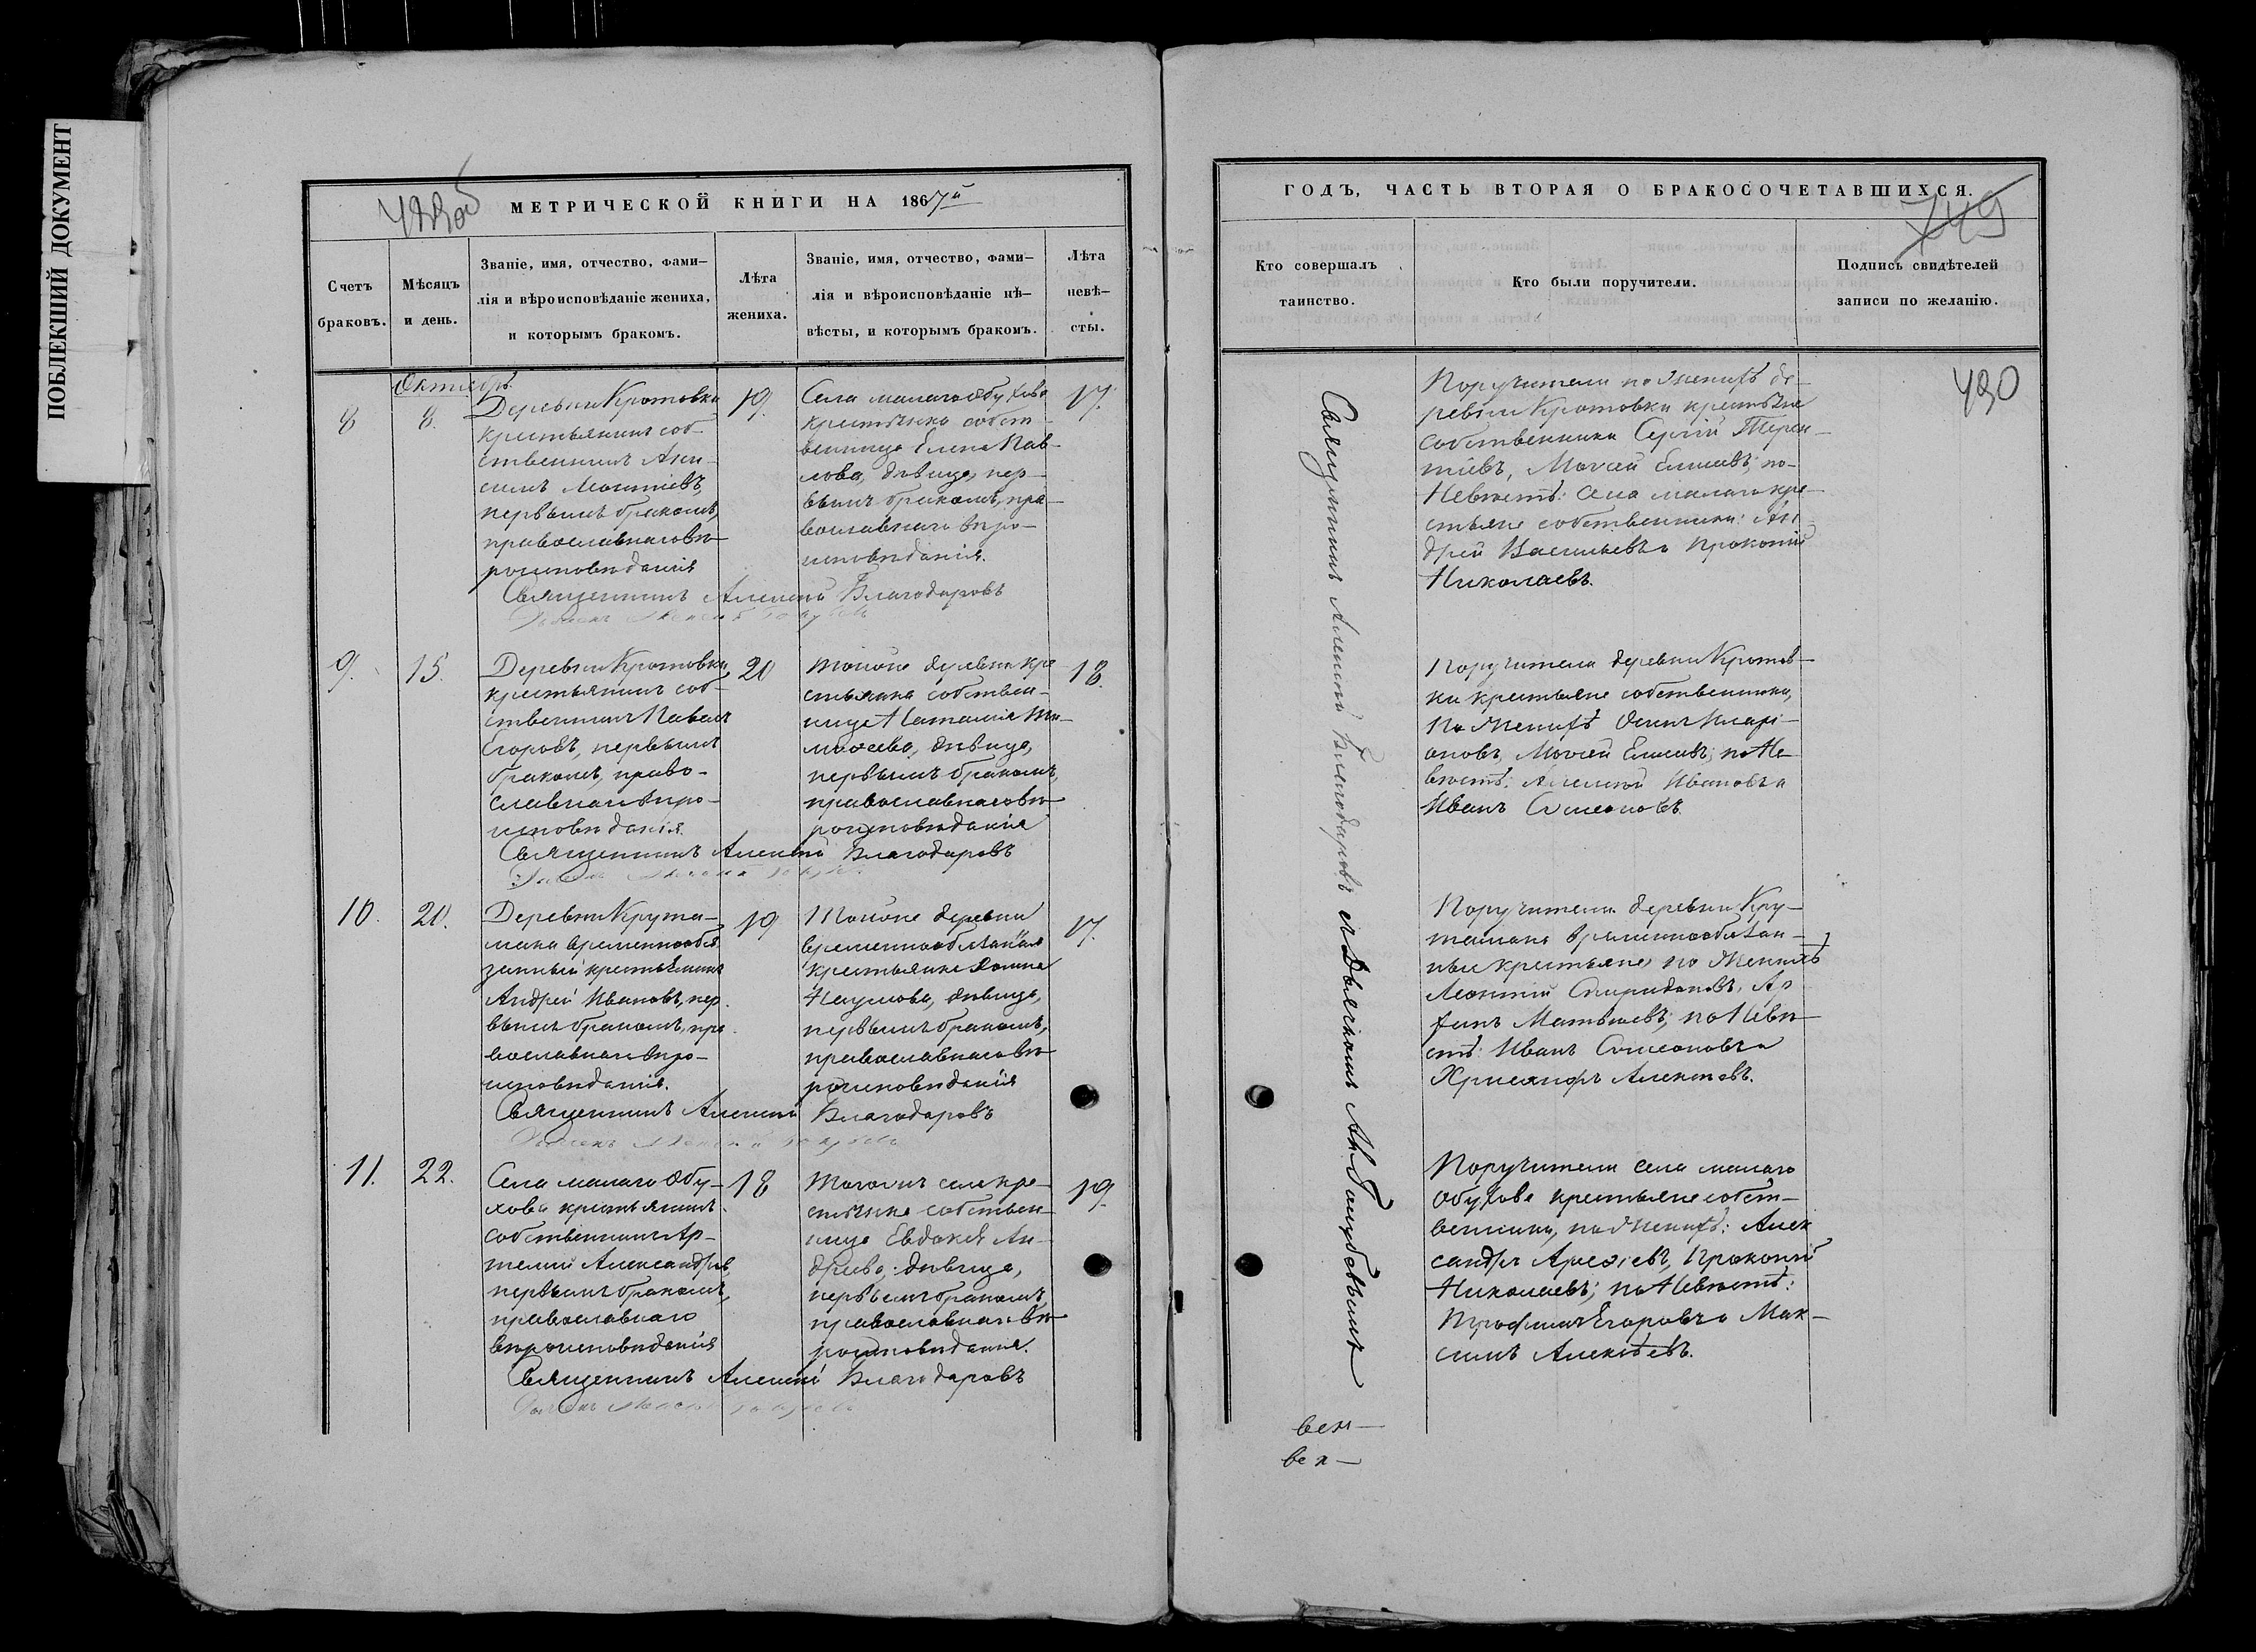 ПОБЛЕКШИЙ ДОКУМЕНТ
МЕТРИЧЕСКОЙ КНИГИ НА 1867й
Счетъ браковъ.
Мѣсяцъ и день.
Званіе, имя, отчество, фами–
лія и вѣроисповѣданіе жениха,
и которымъ бракомъ.
Лѣта жениха.
Званіе, имя, отчество, фами–
лія и вѣроисповѣданіе нѣ–
вѣсты, и которымъ бракомъ.
Лѣта невѣ–
сты.
Октябрь
8
8.
Деревни Кротовки
крестьянинъ соб–
ственникъ Ани–
симъ Леонтіевъ,
первымъ бракомъ,
православнаго вѣ–
роисповѣданія
19.
Села малаго Обухова
крестьянка собст–
венница Елена Пав–
лова, дѣвица, пер–
вымъ бракомъ, пра–
вославнаго вѣро–
исповѣданія.
17.
Священникъ Алексій Благодаровъ
9.
15.
Деревни Кротовки
крестьянинъ соб–
ственникъ Павелъ
Егоровъ, первымъ
бракомъ, право–
славнаго вѣро–
исповѣданія.
20
Тойоже деревни кре–
стьянка собствен–
ница Наталия Ти–
моѳеева, дѣвица,
первымъ бракомъ,
православнаго вѣ–
роисповѣданія
18.
Священникъ Алексій Благодаровъ
10.
20.
Деревни Крута–
мака временнообя
занный крестьянинъ
Андрей Ивановъ, пер–
вымъ бракомъ, пра–
вославнаго вѣро–
исповѣданія.
19
Тойоже деревни
временнообязанная
крестьянка
Наумова, дѣвица,
первымъ бракомъ,
православнаго вѣ–
роисповѣданія
17.
Священникъ Алексій Благодаровъ
11.
22.
Села малаго Обу–
хова крестьянинъ
собственникъ Ар–
темий Александровъ,
первымъ бракомъ,
православнаго
вѣроисповѣданія
18
Тогожъ села кре–
стьянка собствен–
ница Евдокія Ан–
дреева, дѣвица,
первымъ бракомъ,
православнаго вѣ–
роисповѣданія.
19.
Священникъ Алексій Благодаровъ
ГОДЪ, ЧАСТЬ ВТОРАЯ О БРАКОСОЧЕТАВШИХСЯ.
749
Кто совершалъ
таинство.
Кто были поручители.
Подпись свидѣтелей
записи по желанію.
490
Священникъ Алексій Благодаровъ съ Дьячкомъ Голубевымъ
Поручители по Женихѣ де–
ревни Кротовки крестьяне
собственники Сергій Терен–
тіевъ, Моисей Елисеевъ; по
Невѣстѣ: села малаго кре–
стьяне собственники: Ан
дрей Васильевъ и Прокопій
Николаевъ.
Поручители деревни Кротов–
ки крестьяне собственники,
По Женихѣ Осипъ Илари–
оновъ, Моисей Елисеевъ; по Не–
вѣстѣ: Алексій Ивановъ и
Иванъ Симеоновъ.
Поручители деревни Кру–
тамака временнообязан–
ные крестьяне, по Женихѣ
Леонтій Спиридоновъ,
Матвѣевъ; по Невѣ–
стѣ: Иванъ Симеоновъ и
Алексѣевъ.
Поручители села малаго
Обухова крестьяне собст–
венники, по Женихѣ: Алек
сандръ Арсеніевъ, Прокопій
Николаевъ; по Невѣстѣ:
Трофимъ Егоровъ и Мак–
симъ Алексѣевъ.